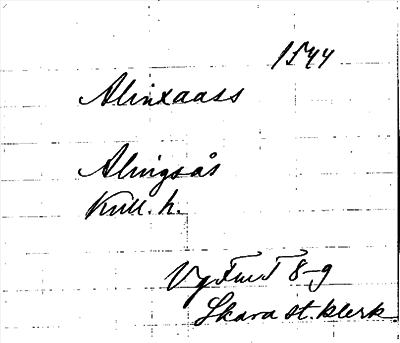 1544
Alinxaass
Alingsås
Kull. h.
Vg Fru T 8-9
Skara st. klerk